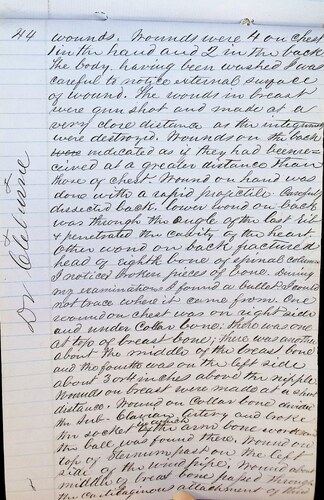 44
wounds. Wounds were 4 on chest
1 in the hand and 2 in the back
The body having been washed I was
careful to notice external surface
of wound. The wounds in breast
were gun shot and made at a
very close distance as the integument
were destroyed. Wounds on the back
were indicated as if they had been re-
ceived at a greater distance than
those of chest. Wound on hand was
done with a rapid projectile. Carefully
dissected back. lower wound on back
was through the angle of the last rib
& penetrated the cavity of the heart
Other wound on back fractured
head of eighth bone of spinal column
I noticed broken pieces of bone. During
my examinations I found a ballet I could
not trace where it came from. One
wound on chest was on right side
and under Collar bone; there was one
at top of breast bone; there was another
about the middle of the breast bone
and the fourth was on the left side
about 3 or 4 inches above the nipple
Wounds on breast were made at a short
distance. Wound on Collar bone divided
the Sub-Clavian Artery and broke
the socket of the arm bone
the ball was found there. Wound on
top of Sternum past on the left
side of the wind pipe. Wound about
middle of breast bone past through
the cartilaginous attachment of
Dr Cleburne